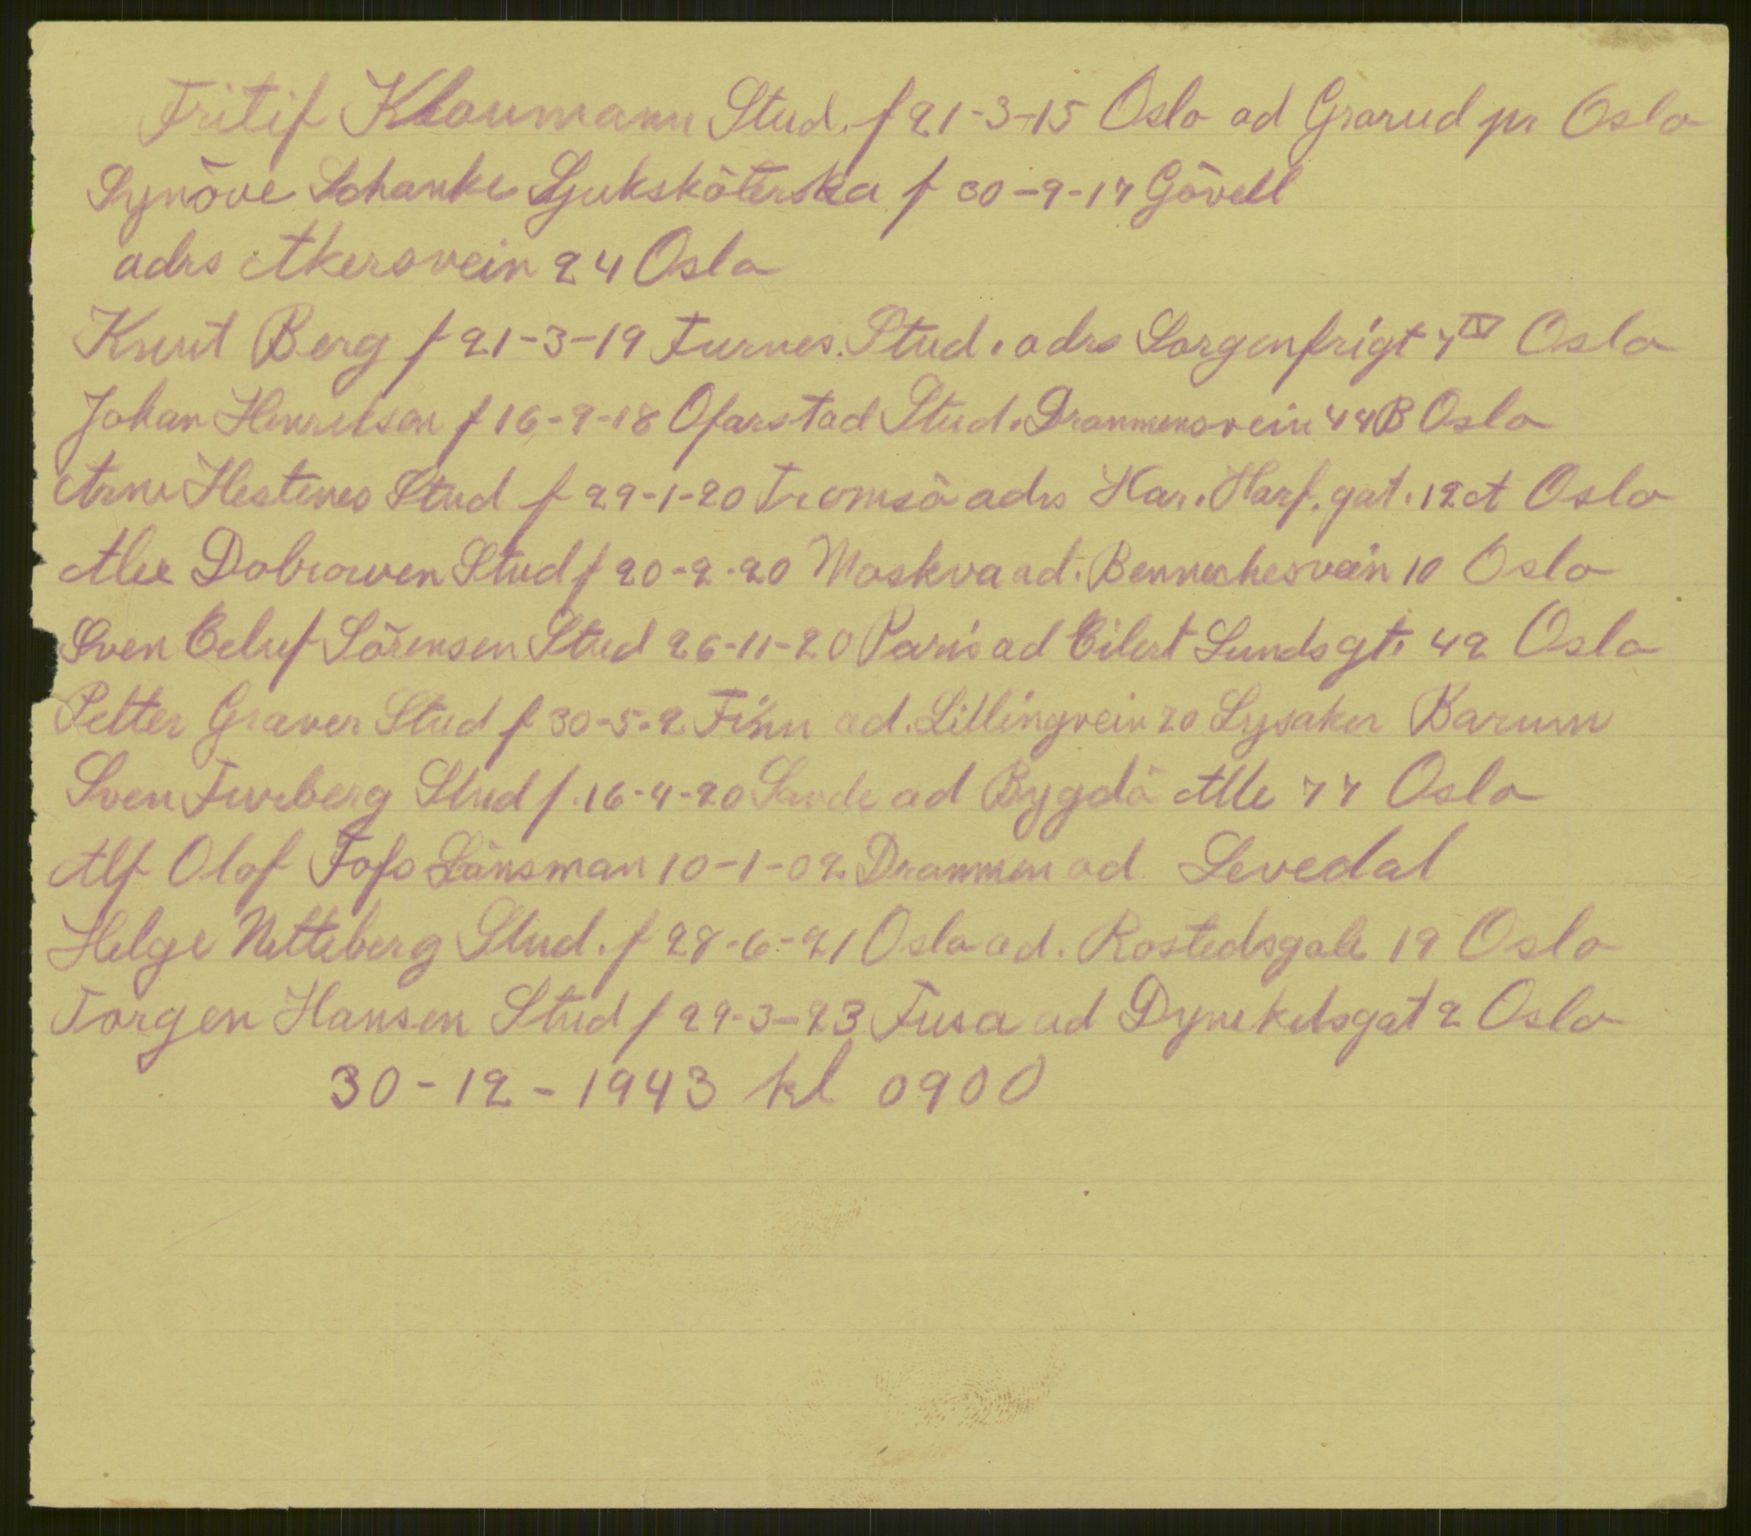 Fritif Klaumann Stud. f 21-3-15 Oslo ad Grorud pr Oslo
Synöve Schanke Sjuksköterska f 30-9-17 Gövell
adrs Akersvein 24 Oslo
Knut Berg f 21-3-19 Furnes. Stud. adrs Sorgenfrigt 7 IV Oslo
Johan Henriksen f 16-9-18 Ofarstad Stud. Drammensvein 44B Oslo
Arne Hestenes Stud f 29-1-20 Tromsö adrs Har. Harf. gat. 12A Oslo
Alex Dobrowen Stud f 20-2-20 Moskva ad. Bennechesvein 10 Oslo
Sven Oeluf Sörensen Stud 26-11-20 Paris ad Eilert Sundsgt. 42 Oslo
Petter Graver Stud f 30-5-2 ad. Lillingvein 20 Lysaker Barum
Sven Furberg Stud f. 16-4-20 Sande ad Bygdö Alle 77 Oslo
Alf Olof Fofs Länsman 10-1-02 Drammen ad Levedal
Helge Netteberg Stud. f 28-6-21 Oslo ad. Rostedsgate 19 Oslo
Torgen Hansen Stud f 29-3-23 Fusa ad Dynekilsgat 2 Oslo
30-12-1943 kl 0900